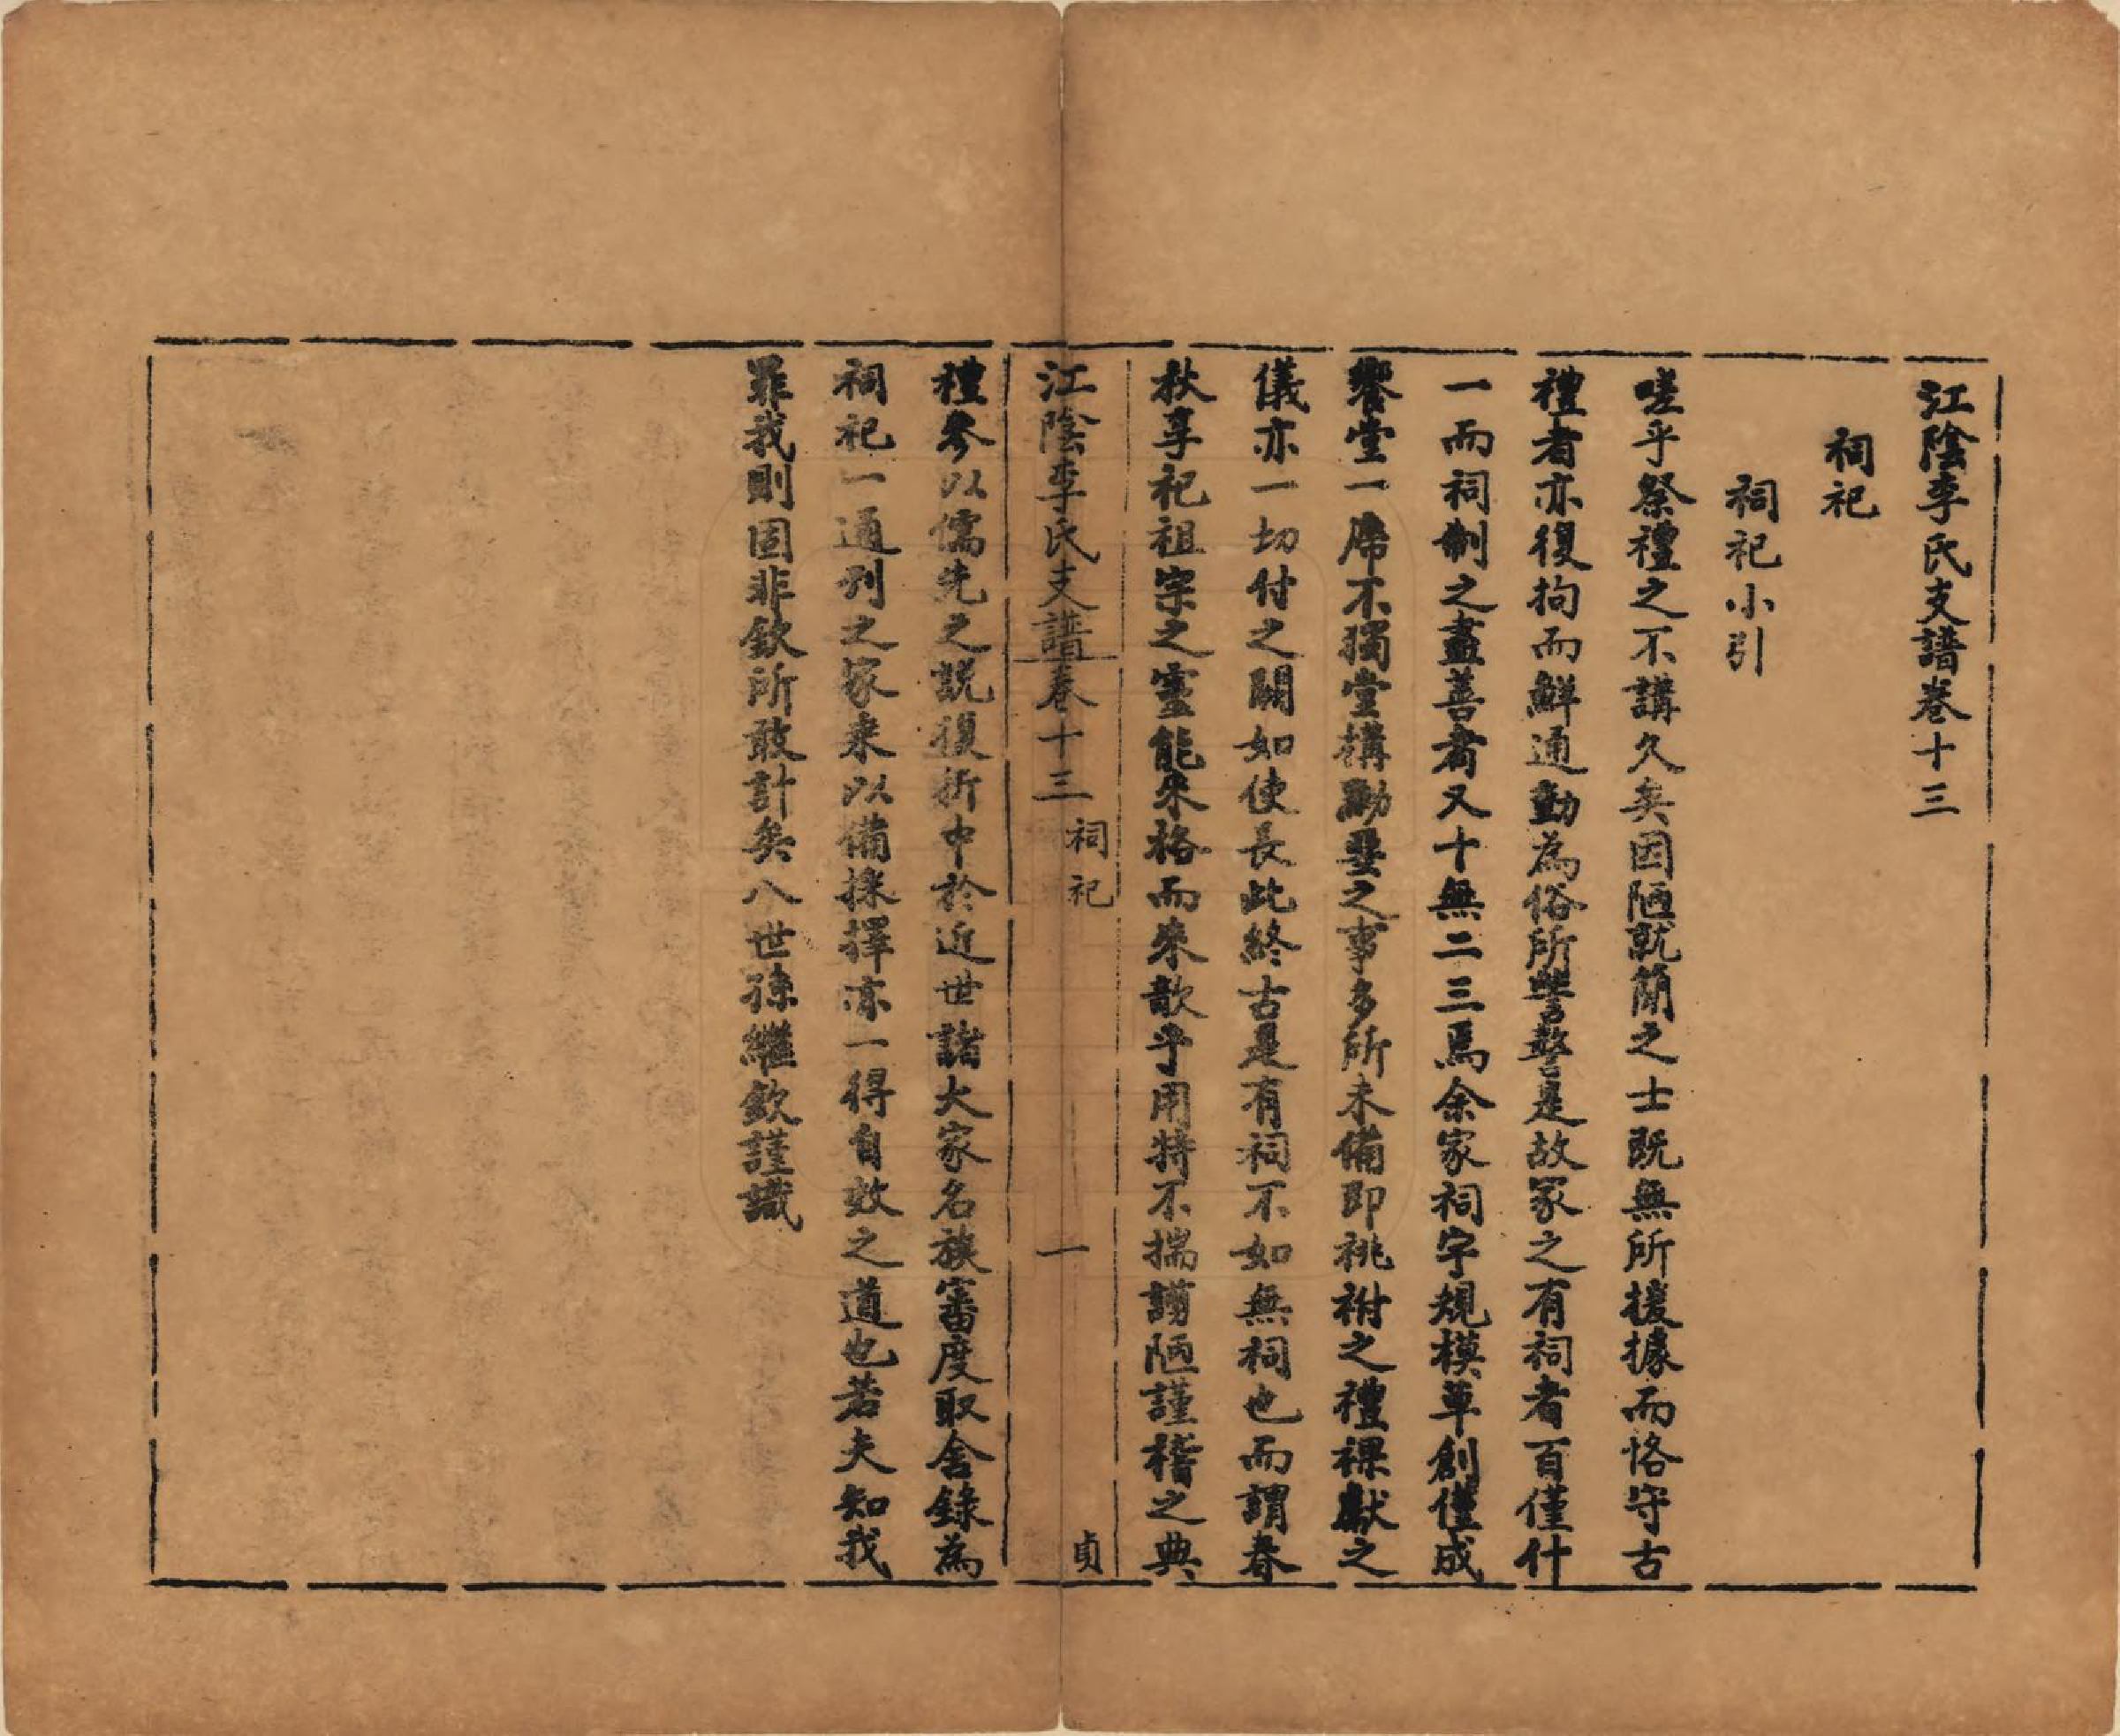 江陰李氏支譜卷十三
祠祀
祠祀小引
嗟乎祭禮之不講久矣因陋就簡之士既無所援據而恪守古
禮者亦復拘而鮮通動為俗所訾謷是故冡之有祠者百僅什
一而祠制之盡善者又十無二三焉余家祠宇規模草創僅成
饗堂一席不獨堂搆勛垔之事多所未備即祧祔之禮祼獻之
儀亦一切付之闕如使長此終古是有祠不如無祠也而謂春
秋享祀祖宗之靈能來格而來歆乎用特不揣譾陋謹稽之典
江陰李氏支譜卷十三
祠祀
一
貞
禮參以儒先之説復折中於近世諸大家名族審度取舍録為
祠祀一通刋之家乘以備採擇亦一得自效之道也若夫知我
罪我則固非欽所敢計矣八世孫繼欽謹識